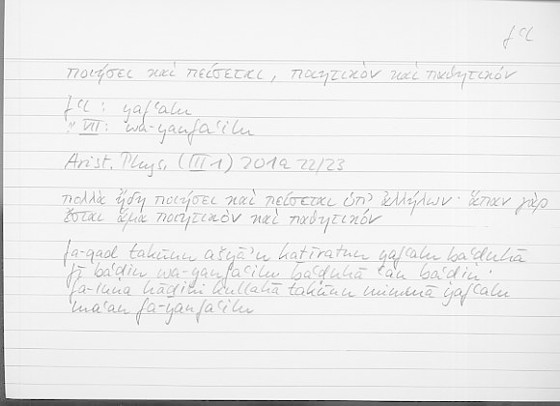 fʿl
ποιήσει καὶ πείσεται, ποιητικὸν καὶ παθητικόν
fʿl : yafʿalu
" VII : wa-yanfaʿilu
Arist. Phys. (III 1) 201a 22/23
πολλὰ ἤδη ποιήσει καὶ πείσεται ὑπ' ἀλλήλων· ἅπαν γὰρ
ἔσται ἅμα ποιητικὸν καὶ παθητικόν
fa-qad takūnu ašyāʾu katīratun yafʿalu baʿḍuhā
fī baʿḍin wa-yanfaʿilu baʿḍuhā ʿan baʿḍin
fa-inna hāḏihi kullahā takūnu mimmā yafʿalu
maʿan fa-yanfaʿilu